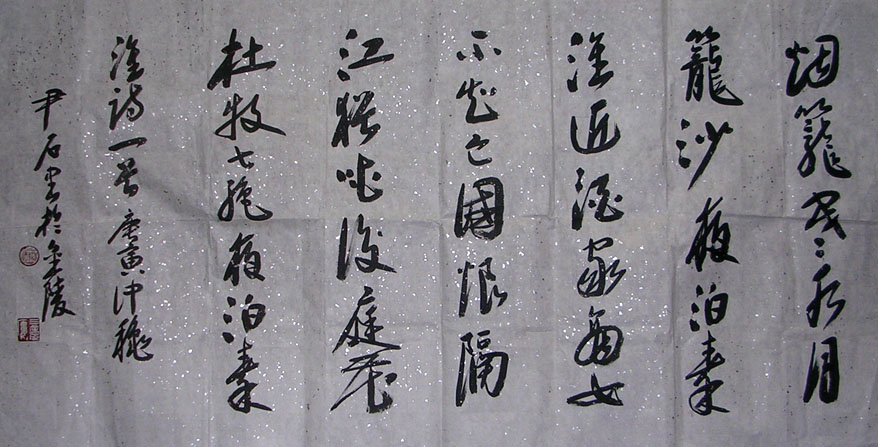 烟籠寒水月
籠沙夜泊秦
淮近酒家商女
不知亡國恨隔
江猶唱後庭花
杜牧七絕夜泊秦
淮詩一首庚寅仲穐
尹石書於金陵